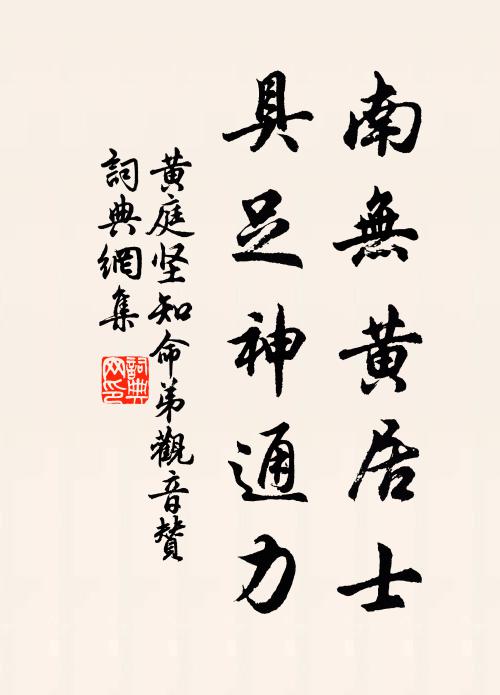 南無黃居士
具足神通力
黃庭坚知命弟觀音贊
詞典網集
詞典網印